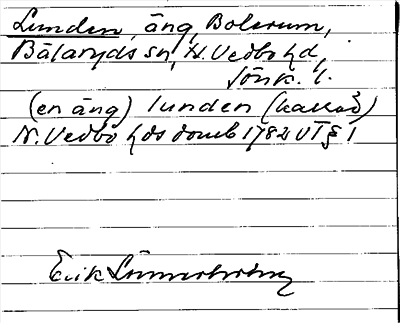 Lunden, äng, Bolerum,
Bälaryds sn, N. Vedbo hd,
Jönk. l.
(en äng) lunden (kallad)
N. Vedbo hds domb 1782 VT § 1
Erik